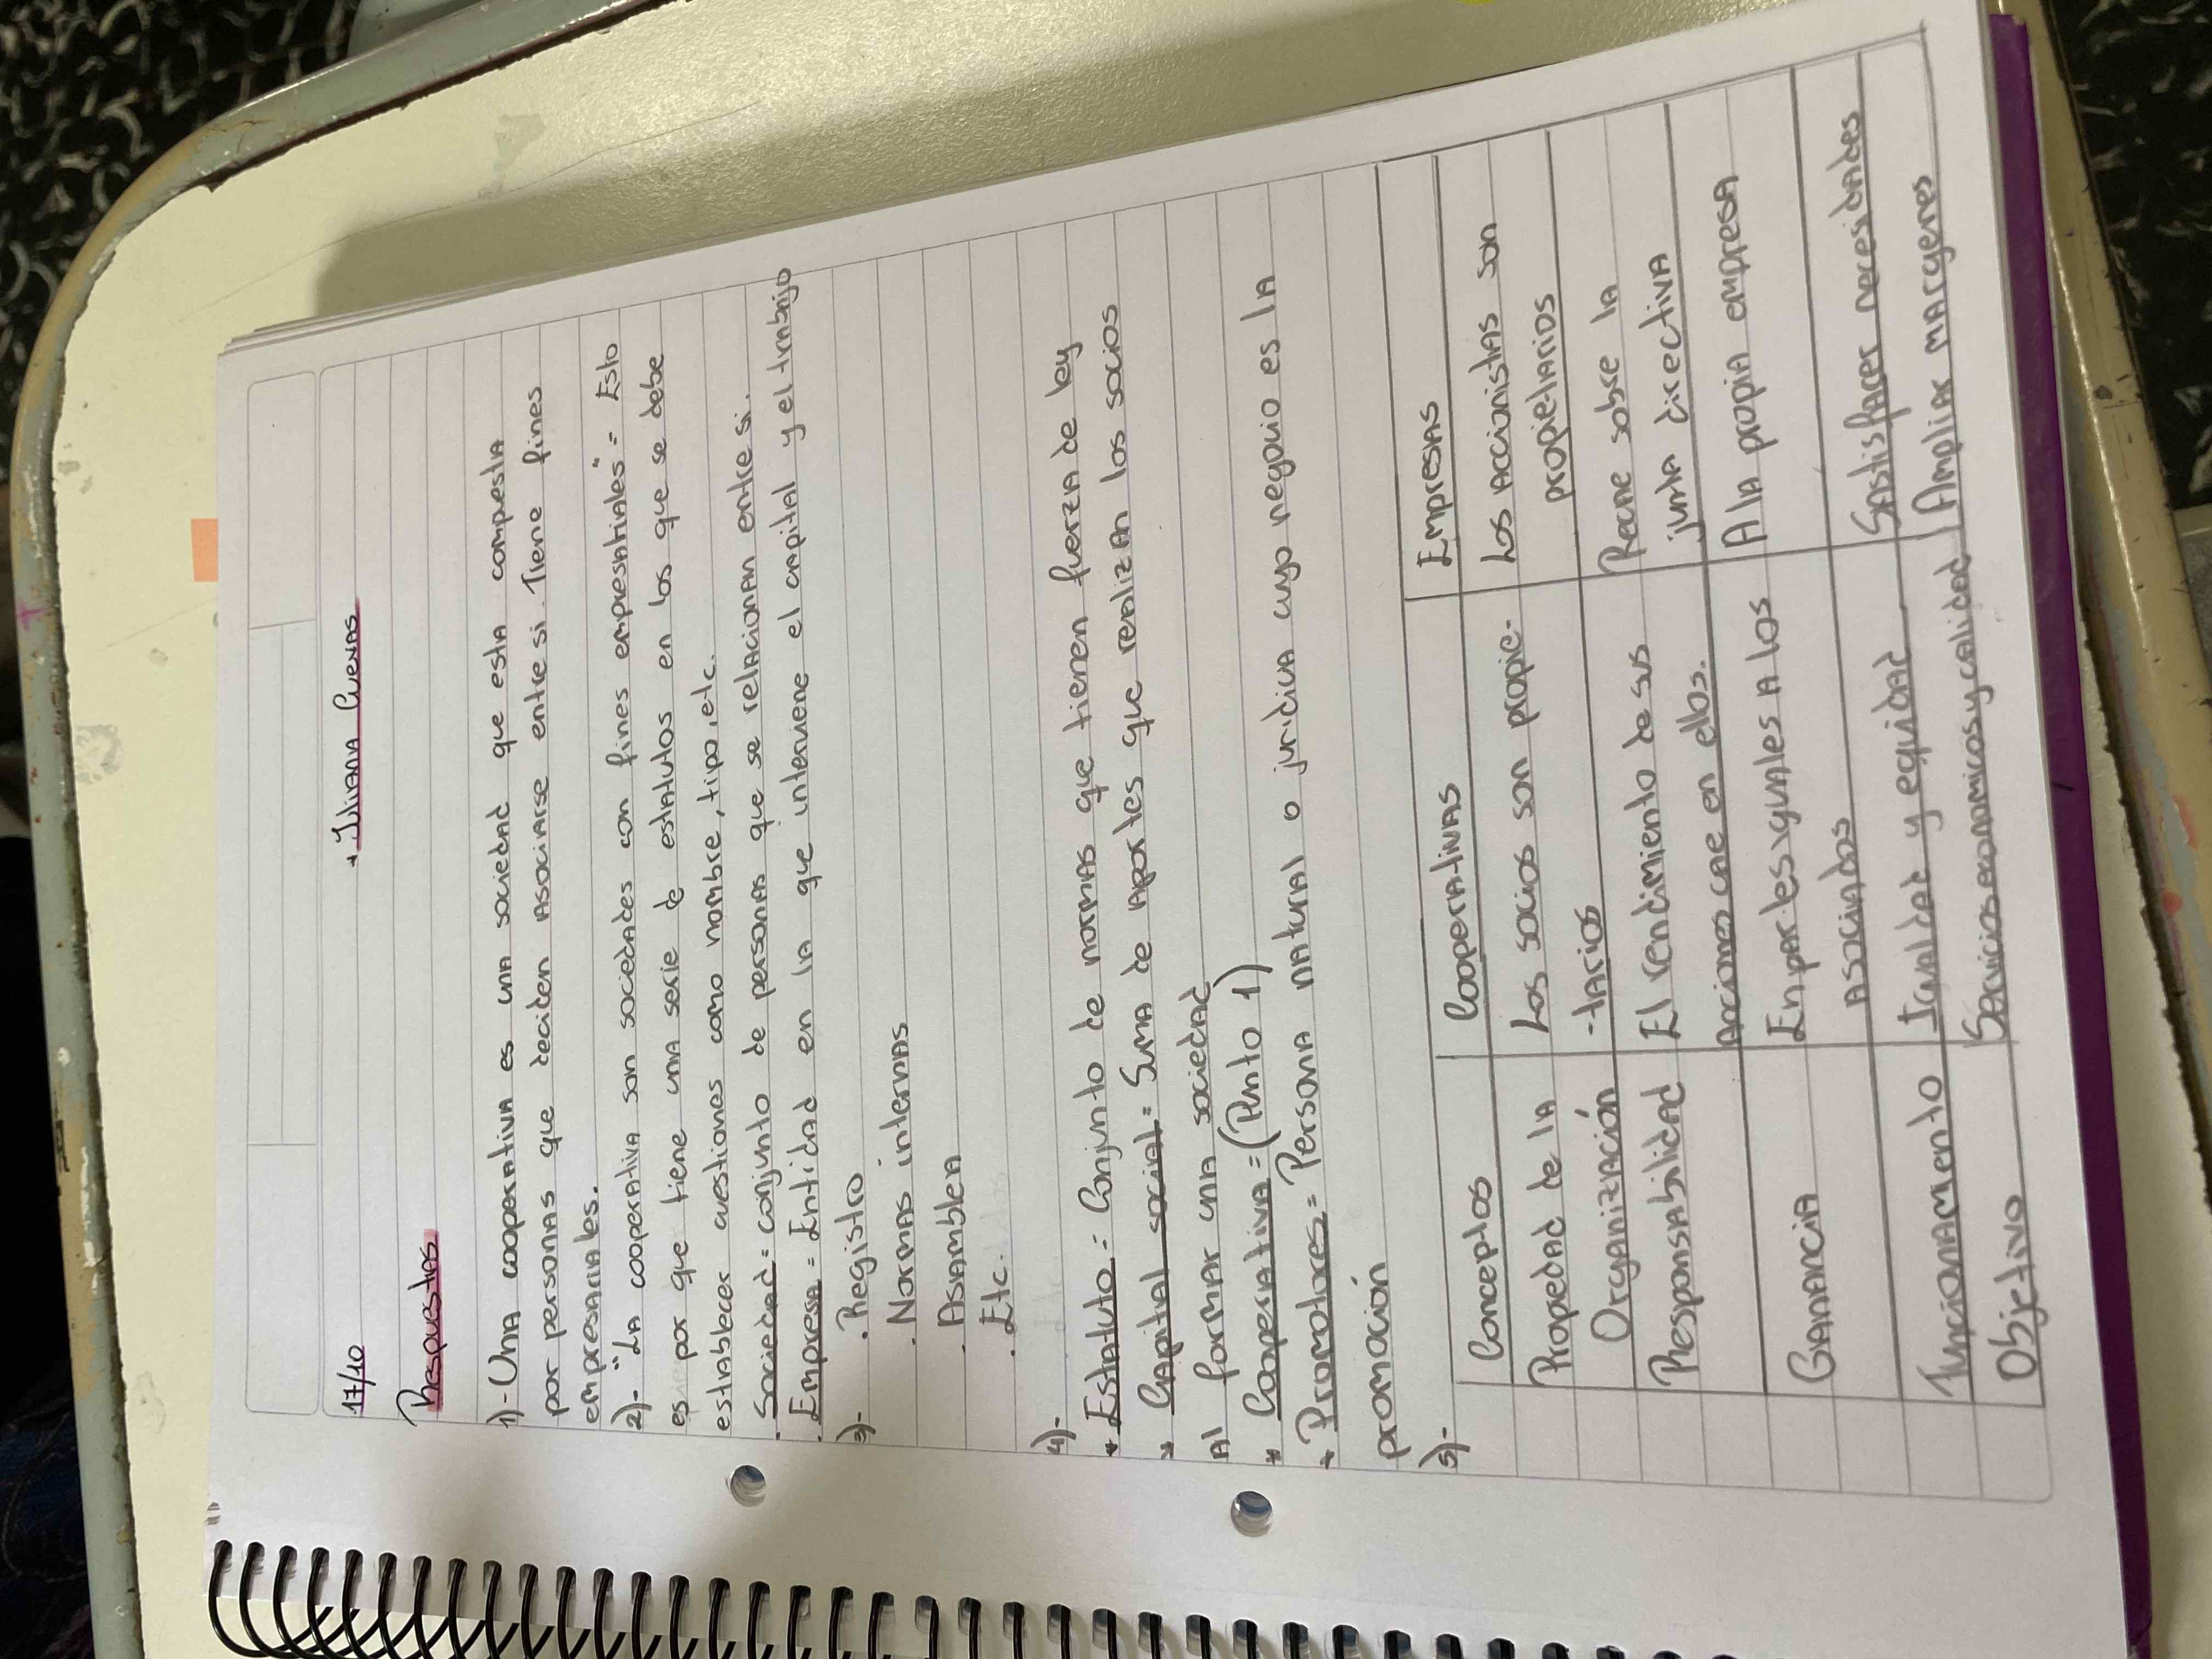 17/10
+ Iliana Cuevas
Respuestas
1)- Una cooperativa es una sociedad que esta compuesta
por personas que deciden asociarse entre si. Tiene fines
empresariales.
2)- "La cooperativa son sociedades con fines empresariales" = Esto
es por que tiene una serie de estatutos en los que se debe
establecer cuestiones como nombre, tipo, etc.
. Sociedad = conjunto de personas que se relacionan entre si.
. Empresa = Entidad en la que interviene el capital y el trabajo
3)- . Registro
. Normas internas
. Asamblea
. Etc.
4)-
* Estatuto = Conjunto de normas que tienen fuerza de ley
* Capital social = Suma de aportes que realizan los socios
al formar una sociedad
* Cooperativa = (Punto 1)
* Promotores = Persona natural o juridica cuyo negocio es la
promoción
5)-
Conceptos Cooperativas Empresas
Propedad de la Los socios son propie- Los accionistas son
Organización -tarios propietarios
Responsabilidad El rendimiento de sus Recae sobre la
acciones cae en ellos. junta directiva
Ganancia En partes iguales a los A la propia empresa
asociados
Funcionamiento Igualdad y equidad Sastisfacer necesidades
Objetivo Servicios economicos y calidad Ampliar margenes